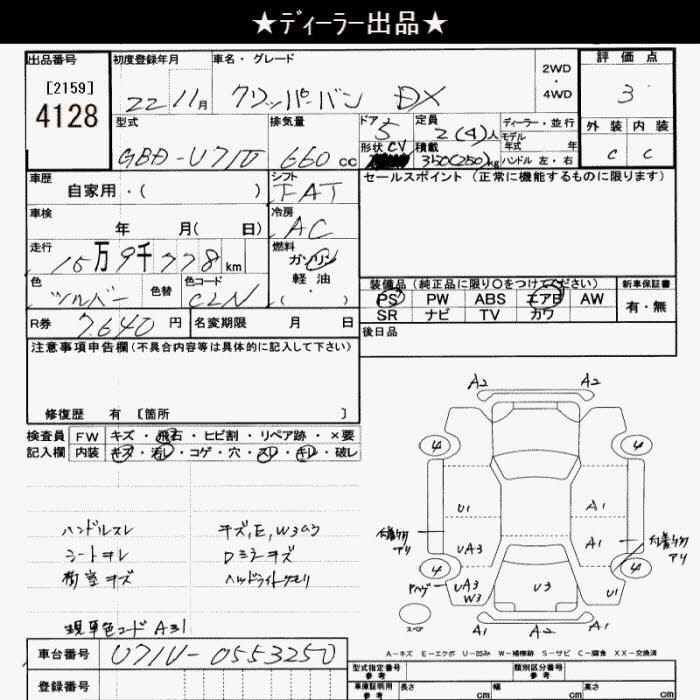 ★ディーラー出品★
出品番号
[2159]
4128
初度登録年月
22 11月
車名・グレード
クリッパーバン DX
2WD
・
4WD
評価点
3
外装 内装
C C
型式
GBD-U71V
排気量
660 cc
ドア
5
形状 CV
定員
2(4)人
積載
350(250)kg
ディーラー・並行
モデル
年式 年
ハンドル 左・右
車歴
自家用・( )
シフト
FAT
セールスポイント(正常に機能するものに限ります)
車検
年 月( 日)
冷房
AC
走行
15万9千778km
燃料
ガソリン
軽油
( ・ )
色
シルバー
色替
色コード
CLN
装備品(純正品に限り○をつけてください)
PS PW ABS エアB AW
SR ナビ TV カワ
新車保証書
有・無
R券
7,640円
名変期限 月 日
後日品
注意事項申告欄(不具合内容等は具体的に記入して下さい)
修復歴 有 [箇所 ]
検査員
記入欄
FW キズ・飛石・ヒビ割・リペア跡・×要
内装 キズ・汚レ・コゲ・穴・スレ・キレ・破レ
ハンドルスレ
シートキレ
荷室キズ
現車色コード A31
キズ,E,W3あり
Dミラーキズ
ヘッドライトクモリ
A2 A2
4 4
U1 A1
付着物
アリ
UA3 A1
付着物
アリ
4 4
UA3
W3
U3 U1
スペア
A1 A2 A1
A-キズ E-エクボ U-凹み W-補修跡 S-サビ C-腐食 XX-交換済
車台番号
U71V-0553250
登録番号
型式指定番号
参考
類別区分番号
参考
車庫証明用
参考
長さ cm
幅 cm
高さ cm